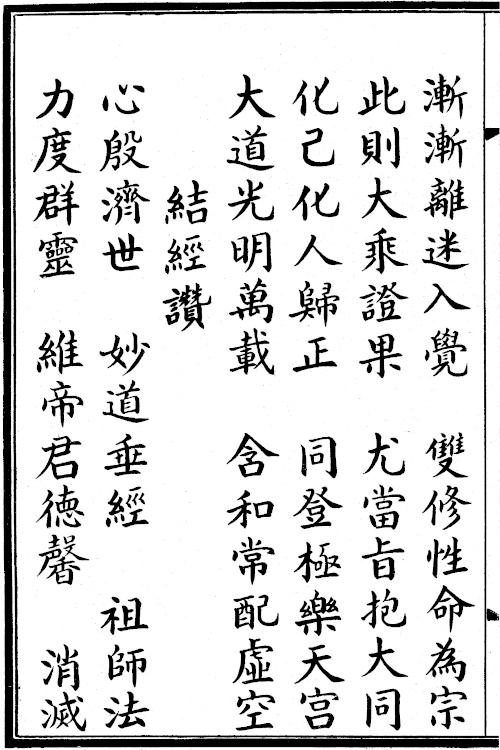 漸漸離迷入覺　雙修性命為宗
此則大乘證果　尤當旨抱大同
化己化人歸正　同登極樂天宮
大道光明萬載　含和常配虛空
結經讚
心殷濟世　妙道垂經　祖師法
力度群靈　維帝君德馨　消滅